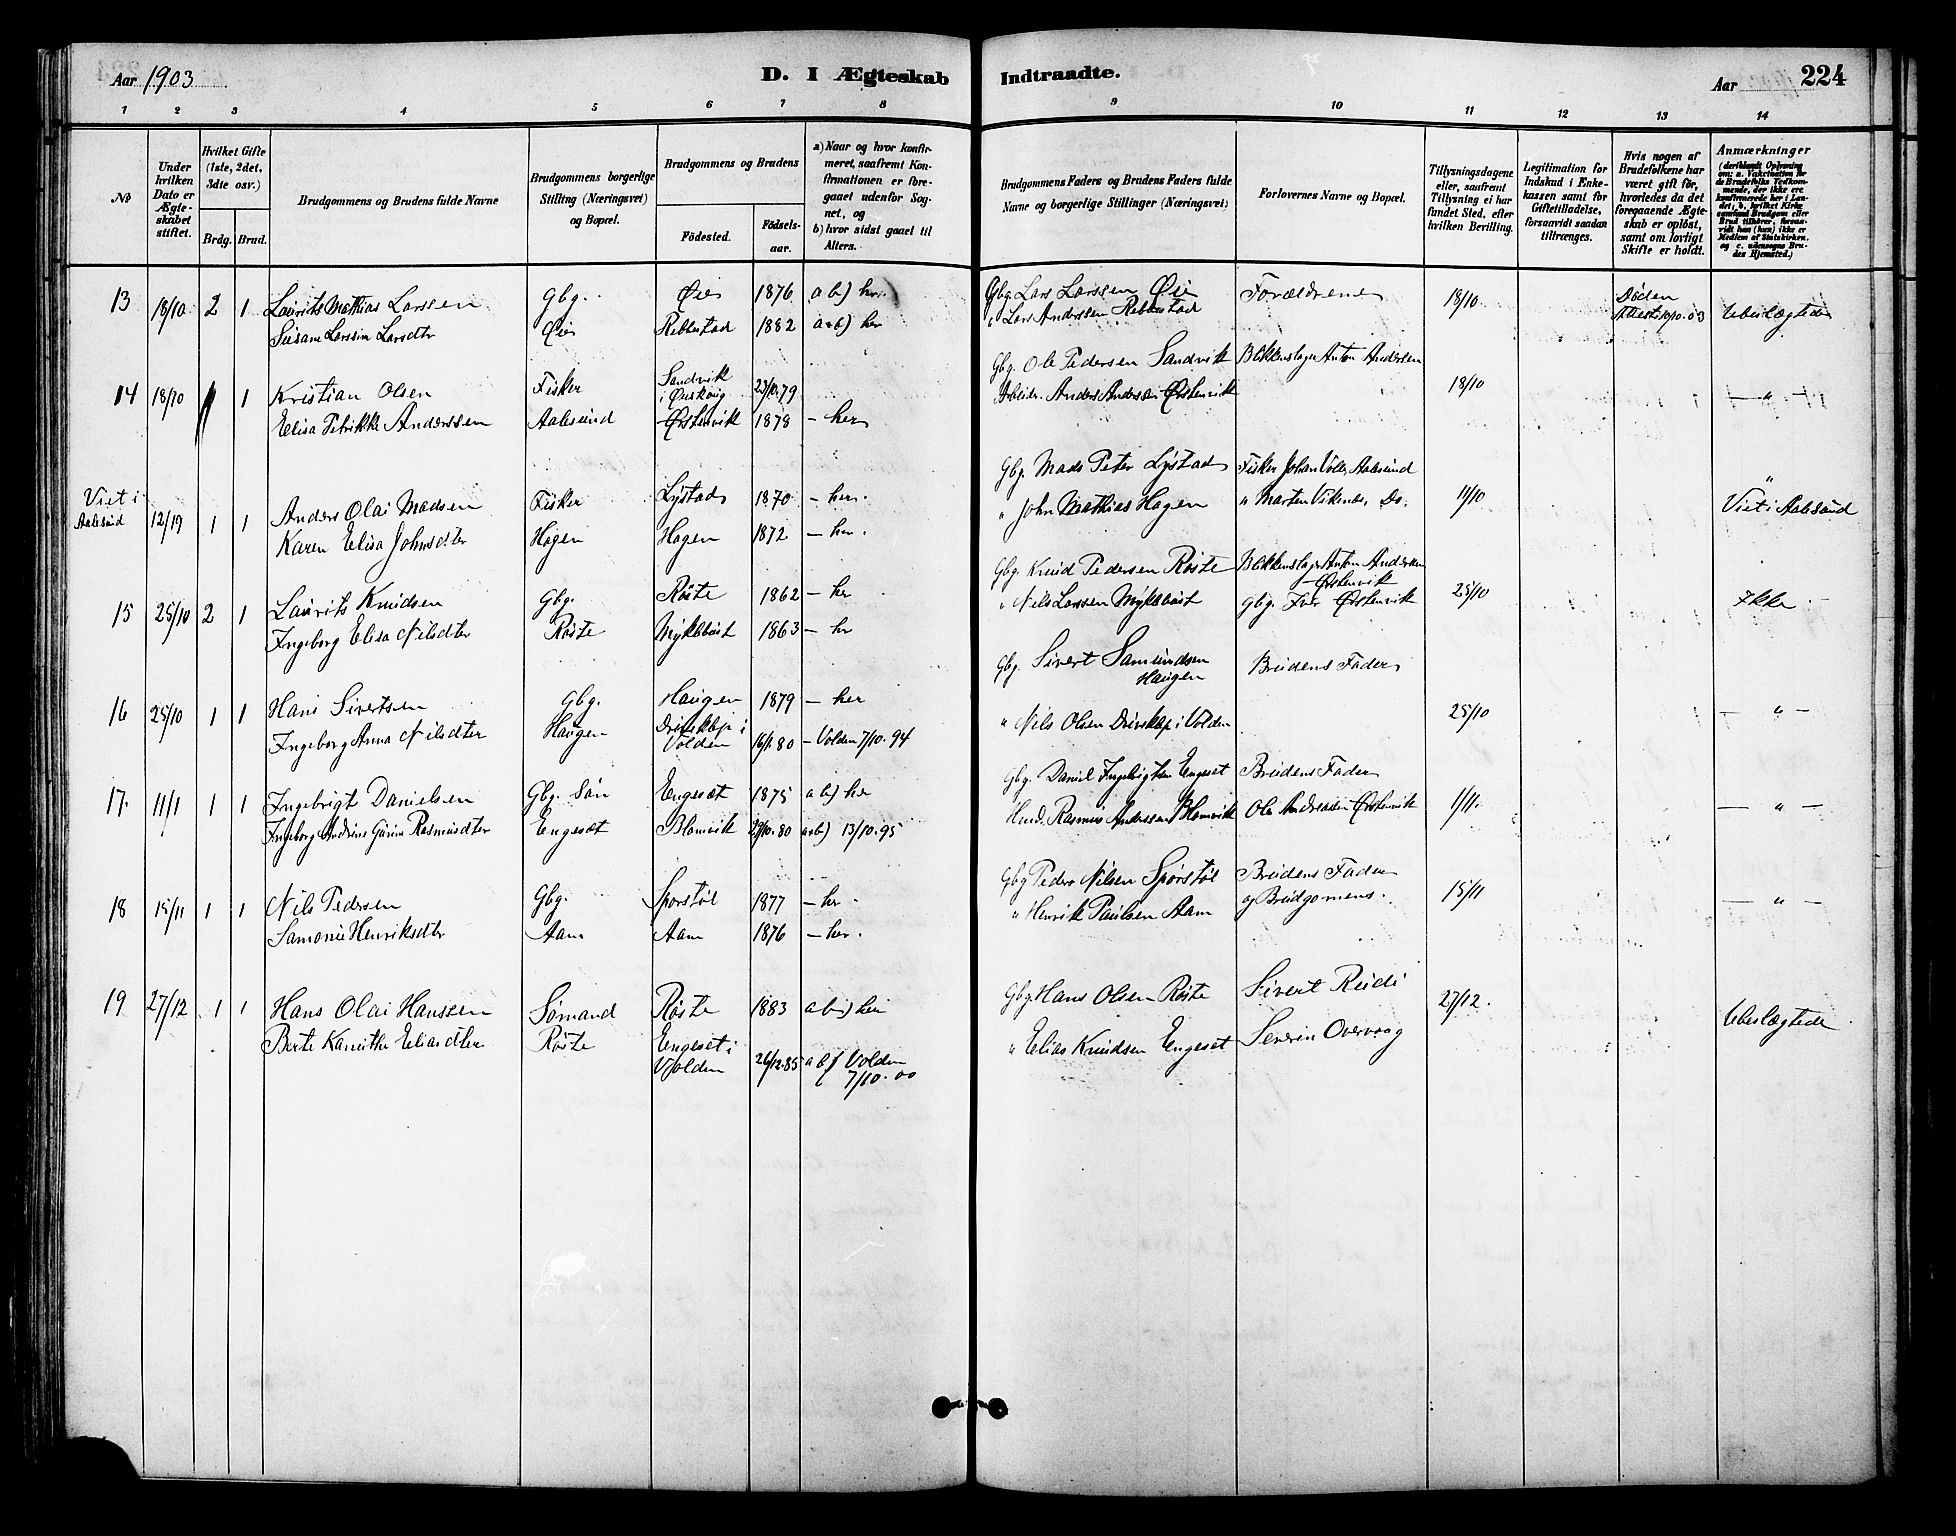 Aar 1903
D. I Ægteskab Indtraadte.
Aar 224
1 2 3 4 5 6 7 8 9 10 11 12 13 14
No
Under hvilken Dato er Ægteskabet stiftet.
Hvilket Gifte (1ste, 2det, 3die osv.)
Brdg. Brud.
Brudgommens og Brudens fulde Navne
Brudgommens borgerlige Stilling (Næringsvei) og Bopæl.
Brudgommens og Brudens
Fødested. Fødselsaar.
a) Naar og hvor konfirmeret, saafremt Konfirmationen er foregaaet udenfor Sognet, og
b) hvor sidst gaaet til Alters.
Brudgommens Faders og Brudens Faders fulde Navne og borgerlige Stillinger (Næringsvei)
Forlovernes Navne og Bopæl.
Tillysningsdagene eller, saafremt Tillysning ei har fundet Sted, efter hvilken Bevilling.
Legitimation for Indskud i Enkekassen samt for Giftetilladelse, forsaavidt saadan tiltrænges.
Hvis nogen af Brudefolkene har været gift før, hvorledes da det foregaaende Ægteskab er opløst, samt om lovligt Skifte er holdt.
Anmærkninger
(deriblandt Oplysning om: a. Vaktination for de Brudefolks Vedkommende, der ikke ere konfirmerede her i Landet; b. hvilket Kirkesamfund Brudgom eller Brud tilhører, forsaavidt han (hun) ikke er Medlem af Statskirken, og c. udensogns Brudes Hjemsted.)
13 18/10 2 1 Laurits Mathias Larssen Gbg. Øie 1876 a b) her Gbg. Lars Larssen Øie Forældrene 18/10 Døden
Larsdtr Øie Rebbestad 1882 a+b) her " Lars Anderssen Rebbestad Attest 10/10. 03 Ubeslægtede
Gbg. Ole Pedersen Sandvik Anton Andersen
14 18/10 1 1 Kristian Olsen Fisker Sandvik i Ørskoug 79 Arbeider Anders Andersen Ørstenvik 18/10 — " —
Elisa Petrikke Anderssen Aalesund Ørstenvik 1878 — her
Gbg. Mads Peter Lystad Fisker Johan Aalesund
Viet i Aalesund 1 1 Anders Olai Madsen Fisker Lystad 1870 — her. " John Mathias Hagen " Marten Viknes, Do. 11/10 Viet i Aalesund
Karen Elisa Johnsdtr Hagen Hagen 1872 — her.
Gbg. Knud Pedersen Røste Anton Andersen Ørstenvik
15 25/10 2 1 Laurits Knudsen Gbg. Røste 1862 — her " Nils Larssen Myklebust Gbg. Iver Ørstenvik 25/10 Ikke
Ingeborg Elisa Nilsdtr Røste Myklebust 1863 — her
Gbg. Sivert Samundsen Haugen Brudens Fader
16 25/10 1 1 Hans Sivertsen Gbg. Haugen 1879 — her " Nils Olsen i Volden 25/10 — " —
Ingeborg Anna Nilsdtr Haugen i Volden 16/1 80 — Volden 7/10. 94
Gbg. Daniel Ingebrigtsen Engeset Brudens Fader
17. 11/1 1 1 Ingebrigt Danielsen Gbg. Søn Engesæt 1875 a b) her Rasmus Anderssen Blomvik Ole Andreasen Ørstenvik 1/11. — " —
Ingeborg Andrine Rasmusdtr Engesæt Blomvik 29/10. 80 a+b) 13/10. 95
Gbg Peder Nilsen Sporstøl Brudens Fader
18 15/11 1 1 Nils Pedersen Gbg. Sporstøl 1877 — her. " Henrik Paulsen Aam og Brudgomens. 15/11 — " —
Henriksdtr Aam Aam 1876 — her.
19 27/12 1 1 Hans Olai Hanssen Sømand Røste 1883 a b) her Gbg. Hans Olsen Røste Sivert 27/12. Ubeslægtede
Berte Eliasdtr Røste Engeset i Volden 26/12. 85 a b) Volden 7/10. 00 " Elias Knudsen Engeset Severin Overvaag